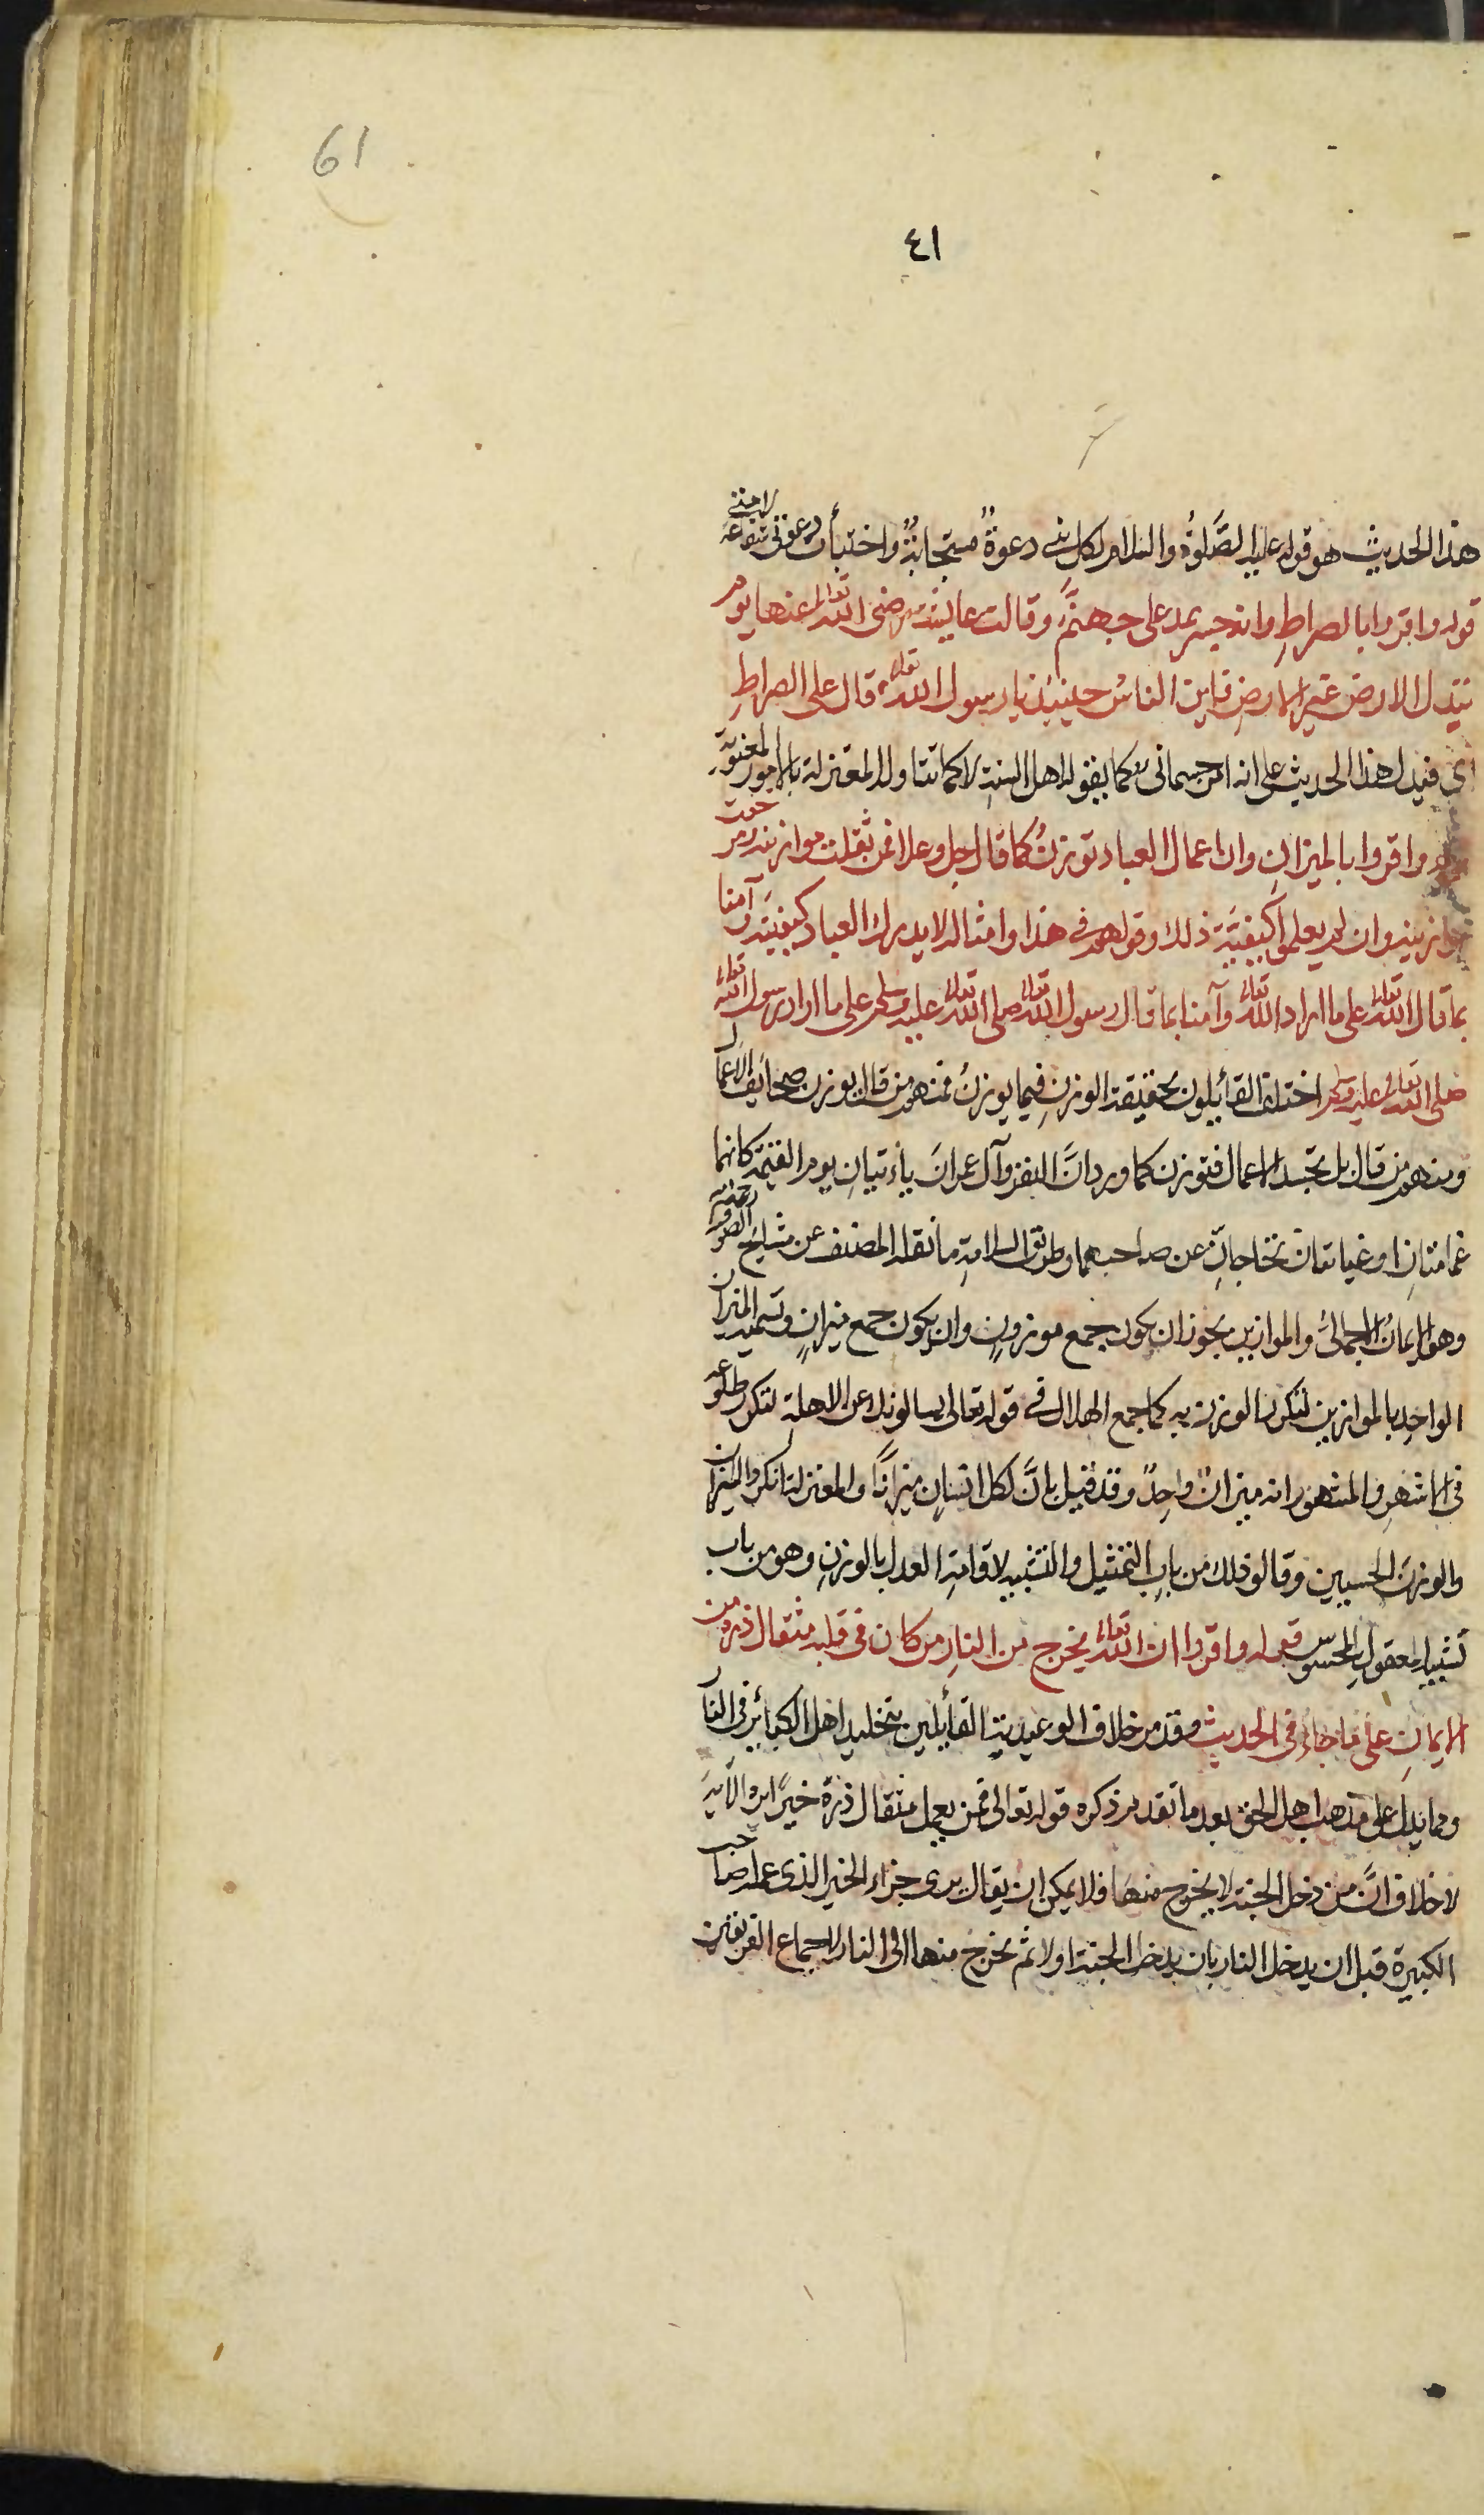 61
٤١
هذا الحديث هو قوله عليه الصَّلوةُ والسلام لكل نبى دعوةٌ مستجابةٌ واختبأت دعوتى شفاعة لامتى
قوله واقروا بالصراطِ وانه جسر يمد على جهنمَّ وقالت عايشة رضى الله تعالى عنها يوم
تبدل الارض غير الارضِ فاين الناسُ حينئذ يا رسول الله تعالى قال على الصراطِ
فيدل هذا الحديث على انه امر جسمانى كما يقوله اهل السنة لا كما تتاوله المعتزلة بالامور المعنوية
واقروا بالميزانِ وان اعمال العباد توزنُ كما قال جل وعلا فمن ثقلت موازينه ومن خفت
موازينه وان لم يعلموا كيفيَّة ذلك وقولهم فى هذا وامثاله لا يدرك العباد كيفيَّته آمنا
بما قال الله تعالى على ما اراد الله تعالى وآمنا بما قال رسول الله تعالى صلى الله تعالى عليه وسلم على ما اراد رسول الله تعالى
صلى الله تعالى عليه وسلم اختلف القائلون بحقيقة الوزنِ فيما يوزنُ فمنهم من قال يوزن صحايف الاعمال
ومنهم من قال بل تجسد الاعمال فتوزن كما ورد انَّ البقرة وآل عمرانَ يأتيانِ يوم القيمة كانهما
غمامتانِ او غيايتان تحاجانِّ عن صاحبهما وطريق السلامةِ ما نقله المصنف عن مشايخ الصوفية
وهو الايمانُ الاجمالىُّ والموازين يجوز ان يكون جمع موزونٍ وان يكون جمع ميزانٍ وتسمية الميزان
الواحد بالموازين لتكرر الوزن به كما جمع الهلال فى قوله تعالى يسالونك عن الاهلة لتكرر طلوعه
فى الاشهرِ والمشهور انه ميزانٌ واحدٌ وقد قيل بانَّ لكل انسان ميزانًا والمعتزلة انكروا الميزان
والوزنَ الحسيين وقالوا ذلك من باب التمثيل والتشبيه لاقامة العدل بالوزنِ وهو من باب
تشبيه المعقول بالمحسوس قوله واقروا ان الله تعالى يخرج من النار من كان فى قلبه مثقال ذرة من
الايمانِ على ما جاء فى الحديث وقد مر خلاف الوعيدية القائلين بتخليد اهل الكبائر فى النار
ومما يدل على مذهب اهل الحق بعد ما تقدم ذكره قوله تعالى فمن يعمل مثقال ذرة خيرًا يره الآية
لا خلاف انَّ من دخل الجنة لا يخرج منها فلا يمكن ان يقال يرى جزاء الخير الذى عمله صاحب
الكبيرة قبل ان يدخل النار بان يدخل الجنة اولا ثم يخرج منها الى النار لاجماع الفريقين